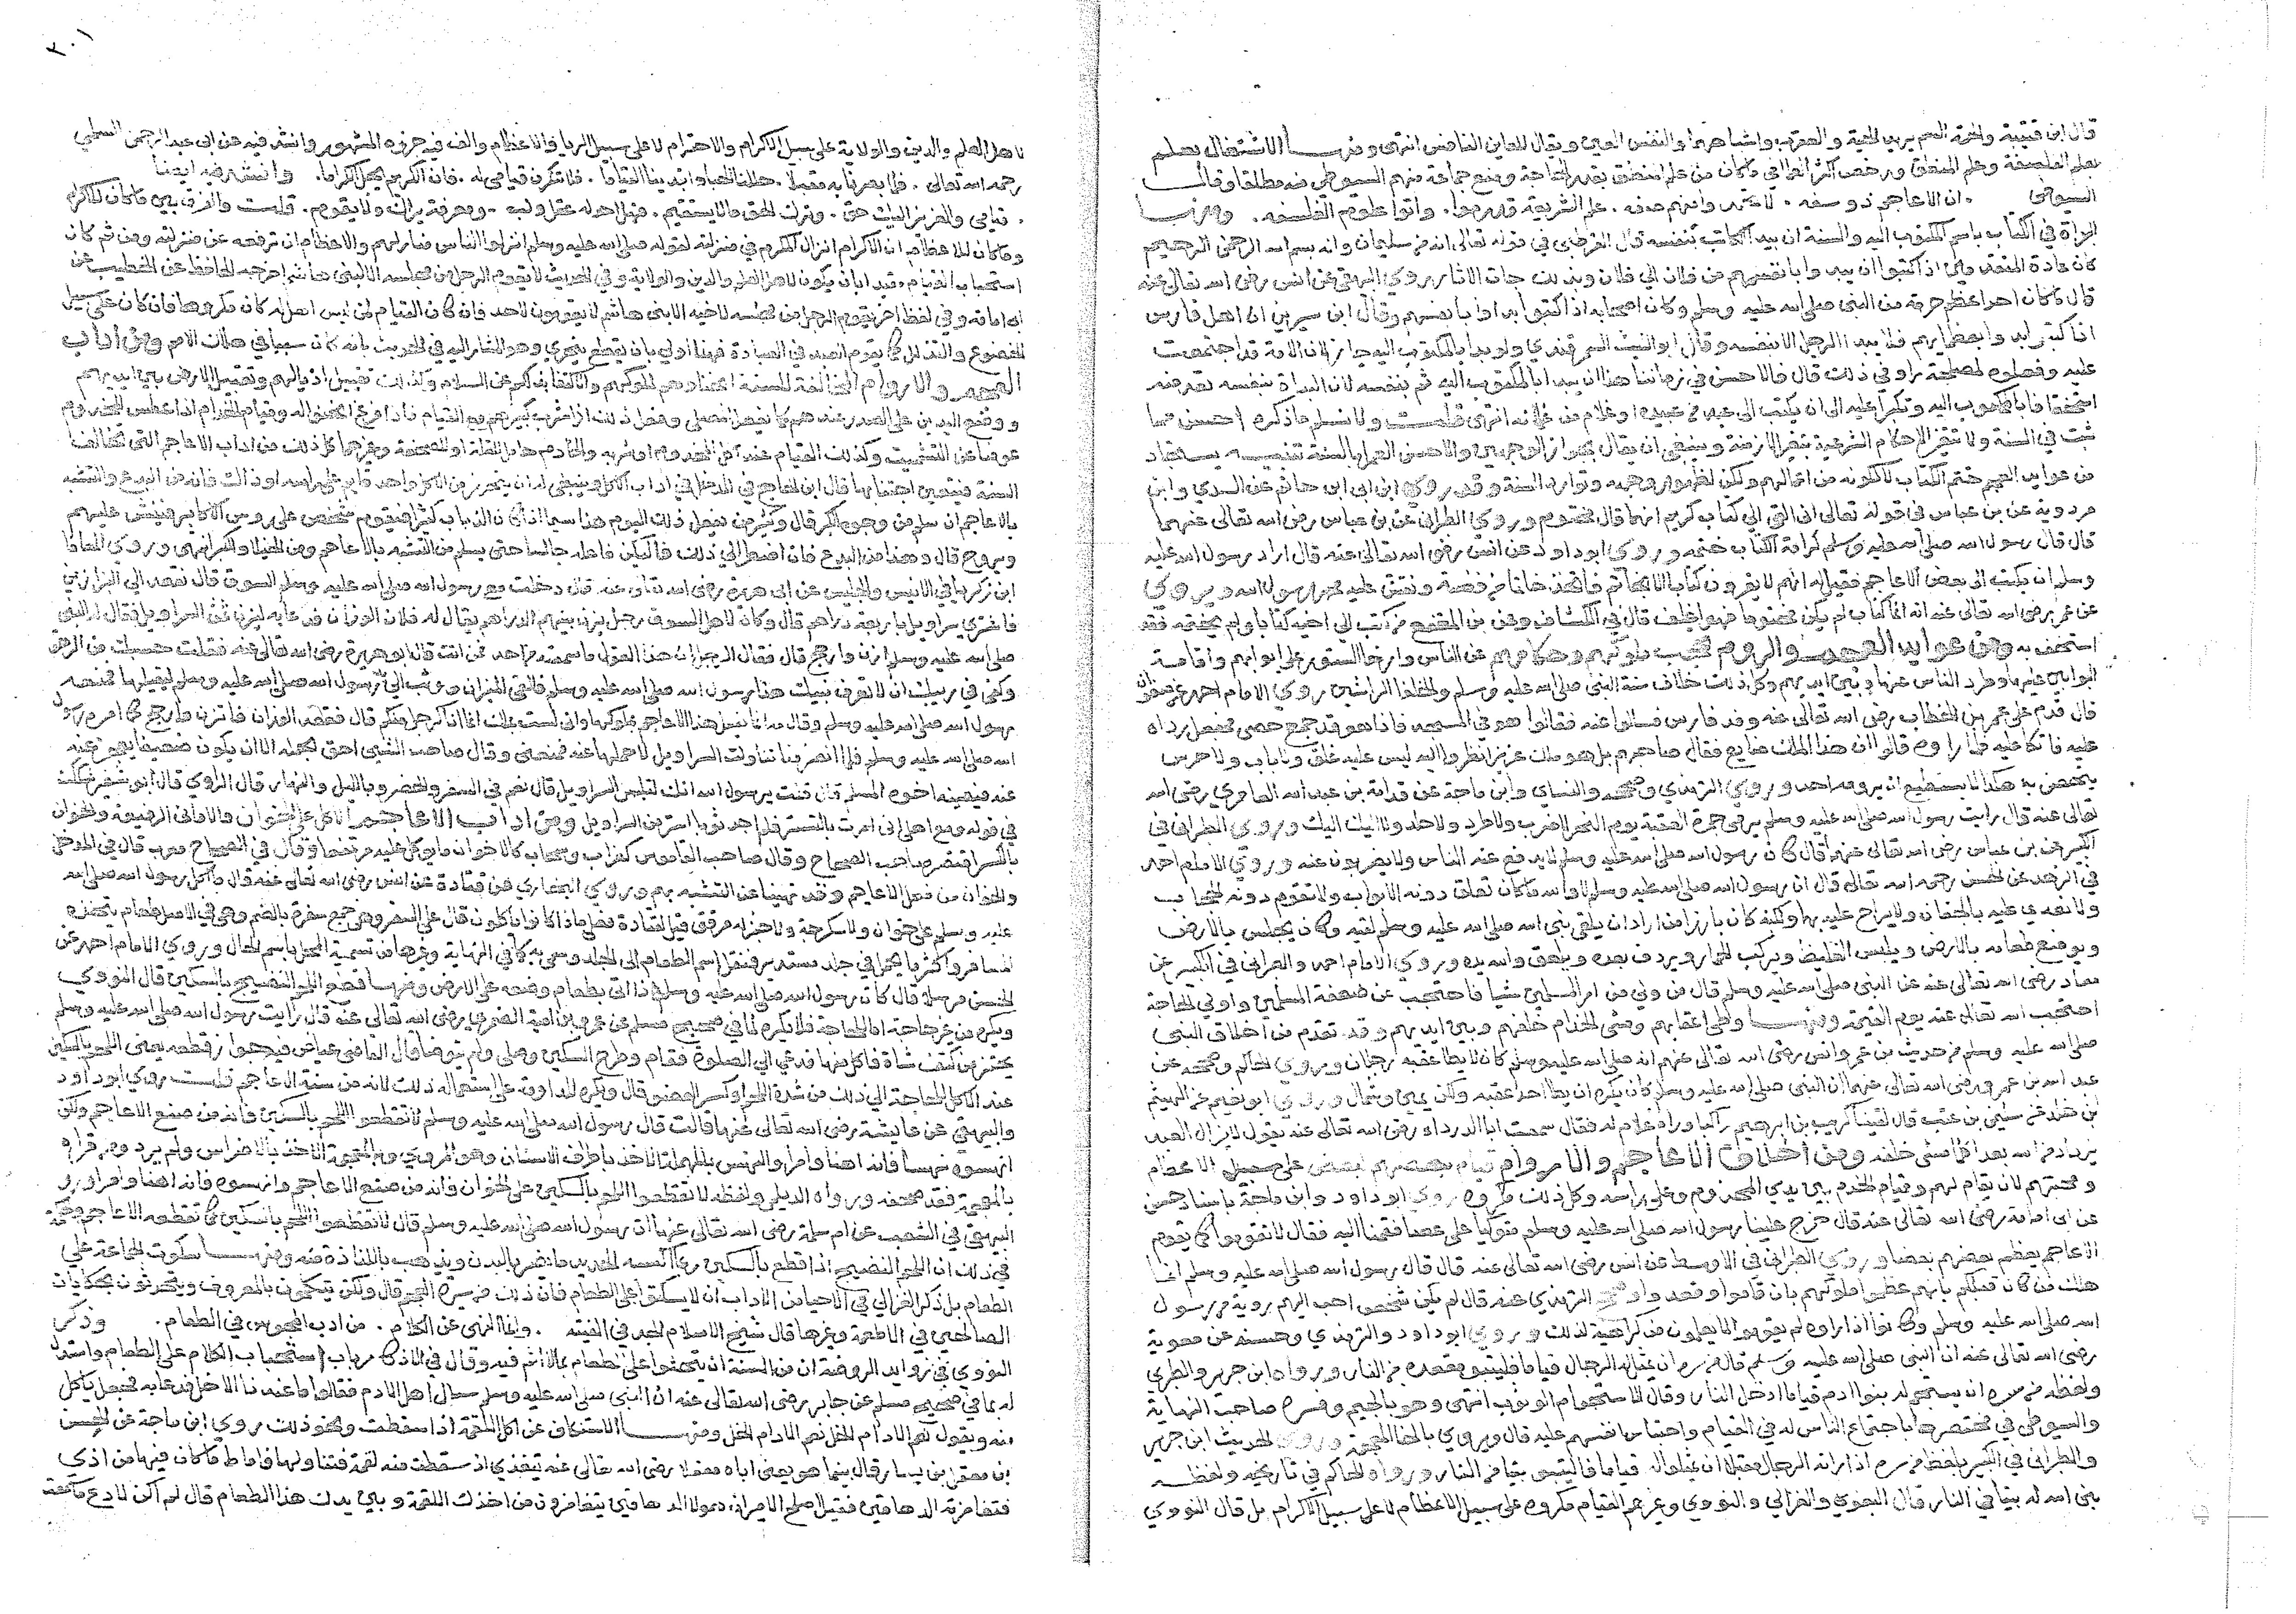 قال ابن قتيبة والحمة السم يريد الحية والعقرب واشباهها والنفس العين ويقال للعاين النافس انتهى ومنها الاشتغال بعلم
بعلم الفلسفة وعلم المنطق ورخص الغزالي في ما كان من علم المنطق بقدر الحاجة ومنع جماعة منهم السيوطي منه مطلقا وقال
السيوطي ان الاعاجم ذو سفه على الشريعة قدموا واتوا علوم الفلسفه ومنها
البداة في الكتاب باسم المكتوب اليه والسنة ان يبدا الكاتب بنفسه قال القرطبي في قوله تعالى انه من سليمان وانه بسم الله الرحمن الرحيم
كان عادة المتقدمين اذا كتبوا ان يبدوا بانفسهم من فلان الى فلان وبذلك جات الاثار روي البيهقي عن انس رضي الله تعالى عنه
قال ما كان احد اعظم حرمة من النبي صلى الله عليه وسلم وكان اصحابه اذا كتبوا بداوا بانفسهم وقال ابن سيرين ان اهل فارس
اذا كتبوا بدوا بعظمايهم فلا يبدا الرجل الا بنفسه وقال ابو الليث السمرقندي ولو بدا بالمكتوب اليه جاز لان الامة قد اجتمعت
عليه وفعلوه لمصلحة راو في ذلك قال فالاحسن في زماننا هذا ان يبدا بالمكتوب اليه ثم بنفسه لان البداة بنفسه تعد منه
استخفافا بالمكتوب اليه وتكبرا عليه الى ان يكتب الى عبد من عبيده او غلام من غلمانه انتهى قلت ولا نسلم ما ذكره احسن مما
ثبت في السنة ولا تتغير الاحكام الشرعية بتغير الازمنة وينبغي ان يقال بجواز الوجهين والاحسن العمل بالسنة تنبيه يستفاد
من عوايد العجم ختم الكتاب لكونه من اعمالهم ولكن لظهور وجهه وتوارد السنة وقد روي ابن ابي حاتم عن السدي وابن
مردوية عن بن عباس في قوله تعالى اني القي الي كتاب كريم انهما قالا مختوم وروي الطبراني عن بن عباس رضي الله تعالى عنهما
قال قال رسول الله صلى الله عليه وسلم كرامة الكتاب ختمه وروي ابو داود عن انس رضي الله تعالى عنه قال اراد رسول الله صلى الله عليه
وسلم ان يكتب الى بعض الاعاجم فقيل له انهم لا يقرون كتابا الا بخاتم فاتخذ خاتما من فضة ونقش عليه محمد رسول الله ويروي
عن عمر رضي الله تعالى عنه انه ايما كتاب لم يكن مختوما فهو اغلف قال في الكشاف وعن بن المقفع من كتب الى اخيه كتابا ولم يختمه فقد
استخف به ومن عوايد العجم والروم تحجب ملوكهم وحكامهم عن الناس وارخا الستور على ابوابهم واقامة
البوابين عليها وطرد الناس عنها وبين ايديهم وكل ذلك خلاف سنة النبي صلى الله عليه وسلم والخلفا الراشدين روي الامام احمد
قال قدم على عمر بن الخطاب رضي الله تعالى عنه وفد فارس فسالوا عنه فقالوا هو في المسجد فاذا هو قد جمع حصى فجعل رداه
عليه فاتكا عليه فلما راوه قالوا ان هذا الملك ضايع فقال صاحبهم بل هو ملك عزيز انظروا اليه ليس عليه غلق ولا باب ولا حرس
هكذا لا يستطيع ان يرومه احد وروي الترمذي وصححه والنساي وابن ماجة عن قدامة بن عبد الله العامري رضي الله
تعالى عنه قال رايت رسول الله صلى الله عليه وسلم يرمي جمرة العقبة يوم النحر لا ضرب ولا طرد ولا جلد ولا اليك اليك وروي الطبراني في
الكبير عن بن عباس رضي الله تعالى عنهما قال كان رسول الله صلى الله عليه وسلم لا يدفع عنه الناس ولا يضربون عنه وروي الامام احمد
في الزهد عن الحسن رحمه الله تعالى قال ان رسول الله صلى الله عليه وسلم لا والله ما كان تغلق دونه الابواب ولا تقوم دونه الحجاب
ولا يغدي عليه بالجفان ولا يراح عليه بها ولكنه كان بارزا من اراد ان يلقى نبي الله صلى الله عليه وسلم لقيه وكان يجلس بالارض
ويوضع طعامه بالارض ويلبس الغليظ ويركب الحمار ويردف بعده ويلعق والله يده وروي الامام احمد والطبراني في الكبير عن
معاذ رضي الله تعالى عنه عن النبي صلى الله عليه وسلم قال من ولي من امر المسلمين شيا فاحتجب عن ضعفة المسلمين واولي الحاجة
احتجب الله تعالى عنه يوم القيمة ومنها وطي اعقابهم ومشي الخدام خلفهم وبين ايديهم وقد تقدم من اخلاق النبي
صلى الله عليه وسلم من حديث بن عمر وانس رضي الله تعالى عنهم انه صلى الله عليه وسلم كان لا يطا عقبه رجلان وروي الحاكم وصححه عن
عبد الله بن عمرو رضي الله تعالى عنهما ان النبي صلى الله عليه وسلم كان يكره ان يطا احد عقبه ولكن يمين وشمال وروي ابو نعيم عن الهيثم
ابن خالد عن سليم بن عتب قال لقينا كريب بن ابرهيم راكبا وراه غلام له فقال سمعت ابا الدرداء رضي الله تعالى عنه يقول لا يزال العبد
يزداد من الله بعدا كلما مشى خلفه ومن اخلاق الاعاجم والاروام قيام بعضهم لبعض على سبيل الاعظام
ومحبتهم لان يقام لهم وقيام الخدم بين يدي المخدوم وعلى راسه وكل ذلك مكروه روي ابو داود وابن ماجة باسناد حسن
عن ابي امامة رضي الله تعالى عنه قال خرج علينا رسول الله صلى الله عليه وسلم متوكيا على عصا فقمنا اليه فقال لا تقوموا كما يقوم
الاعاجم يعظم بعضهم بعضا وروي الطبراني في الاوسط عن انس رضي الله تعالى عنه قال قال رسول الله صلى الله عليه وسلم انما
هلك من كان قبلكم بانهم عظموا ملوكهم بان قاموا وقعدوا الترمذي عنه قال لم يكن شخص احب اليهم روية من رسول
الله صلى الله عليه وسلم وكانوا اذا راوه لم يقوموا لما يعلمون من كراهية لذلك وروي ابو داود والترمذي وحسنه عن معوية
رضي الله تعالى عنه ان النبي صلى الله عليه وسلم قال من سره ان يتمثل له الرجال قياما فليتبوء مقعده من النار ورواه ابن جرير والطبري
ولفظه من سره ان يستجم له بنوا ادم قياما دخل النار وقال الاستجمام الوثوب انتهى وهو بالجيم وفسره صاحب النهاية
والسيوطي في مختصرها باجتماع الناس له في القيام واحتباس انفسهم عليه قال ويروي بالخا المعجمة وروي الحديث ابن جرير
والطبراني في الكبير بلفظ من سره اذا راته الرجال مقبلا ان يمثلوا له قياما فاليتبو بيتا من النار ورواه الحاكم في تاريخه ولفظه
بنى الله له بيتا في النار قال البغوي والغزالي والنووي وغيرهم القيام مكروه على سبيل الاعظام لا على سبيل الاكرام بل قال النووي
٢٠١
لاهل العلم والدين والولاية على سبيل الاكرام والاحترام لا على سبيل الريا والاعظام والف فيه جزوه المشهور وانشد فيه عن ابي عبد الرحمن السلمي
رحمه الله تعالى فلما بصرنا به مقبلا حللنا الحبا وابتدرنا القياما فلا تنكرن قيامي له فان الكريم يجل الكراما وانشد فيه ايضا
قيامي والعزيز اليك حق وترك الحق ما لا يستقيم فهل احد له عقل ولب ومعرفة يراك ولا يقوم قلت والفرق بين ما كان للاكرام
وما كان للاعظام ان الاكرام انزال المكرم في منزلته لقوله صلى الله عليه وسلم انزلوا الناس منازلهم والاعظام ان ترفعه عن منزلته ومن ثم كان
استحباب القيام مقيدا بان يكون لاهل العلم والدين والولاية وفي الحديث لا يقوم الرجل من مجلسه الا لبني هاشم اخرجه الحافظ عن الخطيب عن
ابي امامة وفي لفظ اخر يقوم الرجل من مجلسه لاخيه الا بني هاشم لا يقومون لاحد فان كان القيام لمن ليس اهلا له كان مكروها فان كان على سبيل
الخضوع والتذلل كما يقوم العبد في العبادة فهذا اولى بان يقطع بتحريمه وهو المشار اليه في الحديث بانه كان سببا في هلاك الامم ومن اداب
العجم والاروام المخالفة للسنة انحناوهم لملوكهم والاكتفا بذلك عن السلام وكذلك تقبيل اذيالهم وتقبيل الارض بين ايديهم
ووضع اليدين على الصدر عندهم كما يفعل المصلي وفعل ذلك اذا شرب كبيرهم مع القيام فاذا فرغ انحنوا له وقيام الخدام اذا عطس المخدوم
عوضا عن التشميت وكذلك القيام عند اكل المخدوم او شربه والخادم حامل القلة او المصحفة وغيرها كل ذلك من اداب الاعاجم التي تخالف
السنة فيتعين اجتنابها قال ابن الحاج في المدخل في اداب الاكل وينبغي له ان يتحرز من الاكل واحد قايم على راسه اذ ذاك فانه من البدع والتشبه
بالاعاجم ان سلم من وجوه الكبر قال وكثير من يفعل ذلك اليوم هذا سيما اذا كان الذباب كثيرا فيقوم شخص على روس الاكابر فينش عليهم
ويروح قال وهذا من البدع فان اضطر الى ذلك فاليكن فاعله جالسا حتى يسلم من التشبه بالاعاجم ومن الخيلا والكبر انتهى وروي المعافا
ابن زكريا في الانيس والجليس عن ابي هريرة رضي الله تعالى عنه قال دخلت مع رسول الله صلى الله عليه وسلم السوق قال فقعد الى البزازين
فاشترى سراويل باربعة دراهم قال وكان لاهل السوق رجل يزن بينهم الدراهم يقال له فلان الوزان فدعا به ليزن ثمن السراويل فقال له النبي
صلى الله عليه وسلم زن وارجح قال فقال الرجل ان هذا القول ما سمعته من احد فمن انت قال ابو هريرة رضي الله تعالى عنه فقلت حسبك من الرهق
وكفى في دينك ان لا تعرف نبيك هذا رسول الله صلى الله عليه وسلم فالقى الميزان ووثب الى يد رسول الله صلى الله عليه وسلم ليقبلها فمنعه
رسول الله صلى الله عليه وسلم وقال مه انما يفعل هذا الاعاجم بملوكها واني لست بملك انما انا رجل منكم قال فقعد الوزان فاتزن وارجح كما امره رسول
الله صلى الله عليه وسلم فلما انصرفنا تناولت السراويل لاحملها عنه فمنعني وقال صاحب الشي احق بحمله الا ان يكون ضعيفا يعجز عنه
عنه فيعينه اخوه المسلم قال قلت يرسول الله انك لتلبس السراويل قال نعم في السفر والحضر وبالليل والنهار قال الراوي
في قوله ومع اهلي اني امرت بالتستر فلم اجد ثوبا استر من السراويل ومن اداب الاعاجم الاكل على الخوان والاواني الرفيعة والخوان
بالكسر اقتصر صاحب الصحاح وقال صاحب القاموس كغراب وكتاب كالاخوان ما يوكل عليه مرتفعا وقال في الصحاح معرب قال في المدخل
والخوان من فعل الاعاجم وقد نهينا عن التشبه بهم وروي البخاري عن قتادة عن انس رضي الله تعالى عنه قال ما اكل رسول الله صلى الله
عليه وسلم على خوان ولا سكرجة ولا خبز له مرقق قيل لقتادة فعلى ماذا كانوا ياكلون قال على السفر وهي جمع سفرة بالضم وهي في الاصل طعام يتخذه
المسافر واكثر ما يحمل في جلد مستدير فنقل اسم الطعام الى الجلد وسمي به كما في النهاية وغيرها من تسمية المحل باسم الحال وروي الامام احمد عن
الحسن مرسلا قال كان رسول الله صلى الله عليه وسلم اذا اتى بطعام وضعه على الارض ومنها قطع اللحم النضيج بالسكين قال النووي
ويكره من غير حاجة اما لحاجة فلا يكره لما في صحيح مسلم عن عمرو بن امية الضمري رضي الله تعالى عنه قال رايت رسول الله صلى الله عليه وسلم
يحتز من كتف شاة فاكل منها فدعي الى الصلوة فقام وطرح السكين وصلى ولم يتوضا قال القاضي عياض فيه جواز قطعه يعني اللحم بالسكين
عند الاكل للحاجة الى ذلك من شدة اللحم او كبر العضو قال ويكره المداومة على استعماله ذلك لانه من سنة الاعاجم قلت روي ابو داود
والبيهقي عن عايشة رضي الله تعالى عنها قالت قال رسول الله صلى الله عليه وسلم لا تقطعوا اللحم بالسكين فانه من صنع الاعاجم ولكن
انهسوه نهسا فانه اهنا وامرا والنهس بالمهملة الاخذ باطراف الاسنان وهو المروي وبالمعجمة الاخذ بالاضراس ولم يرد ومن قراه
بالمعجمة فقد صحفه ورواه الديلمي ولفظه لا تقطعوا اللحم بالسكين على الخوان فانه من صنع الاعاجم وانهسوه فانه اهنا وامرا وروي
البيهقي في الشعب عن ام سلمة رضي الله تعالى عنها ان رسول الله صلى الله عليه وسلم قال لا تقطعوا اللحم بالسكين كما تقطعه الاعاجم
في ذلك ان اللحم النضيج اذا قطع بالسكين ربما اكسبه الحديد ما يضر بالبدن ويذهب باللذاذة منه ومنها سكوت الجماعة على
الطعام بل ذكر الغزالي في الاحيا من الاداب ان لا يسكتوا على الطعام فان ذلك من سيرة العجم قال ولكن يتكلمون بالمعروف ويتحدثون بحكايات
الصالحين في الاطعمة وغيرها قال شيخ الاسلام الجد في الفيته وانما النهي عن الكلام من ادب المجوس في الطعام وذكر
النووي في زوايد الروضة ان من السنة ان يتحدثوا على الطعام بما لا اثم فيه وقال في الاذكار باب استحباب الكلام على الطعام واستدل
له بما في صحيح مسلم عن جابر رضي الله تعالى عنه ان النبي صلى الله عليه وسلم سال اهله الادم فقالوا ما عندنا الا خل فدعا به فجعل ياكل
منه ويقول نعم الادام الخل نعم الادام الخل ومنها الاستنكاف عن اكل اللقمة اذا سقطت ونحو ذلك روي ابن ماجة عن الحسن
بن معقل بن يسار قال بينما هو يعني اباه معقلا رضي الله تعالى عنه يتغدي اذ سقطت منه لقمة فتناولها واماط ما كان فيها من اذى
فتغامز به الدهاقين فقيل اصلح الله الامير ان هولا الدهاقين يتغامزون من اخذك اللقمة وبين يديك هذا الطعام قال لم اكن لادع ما سمعته